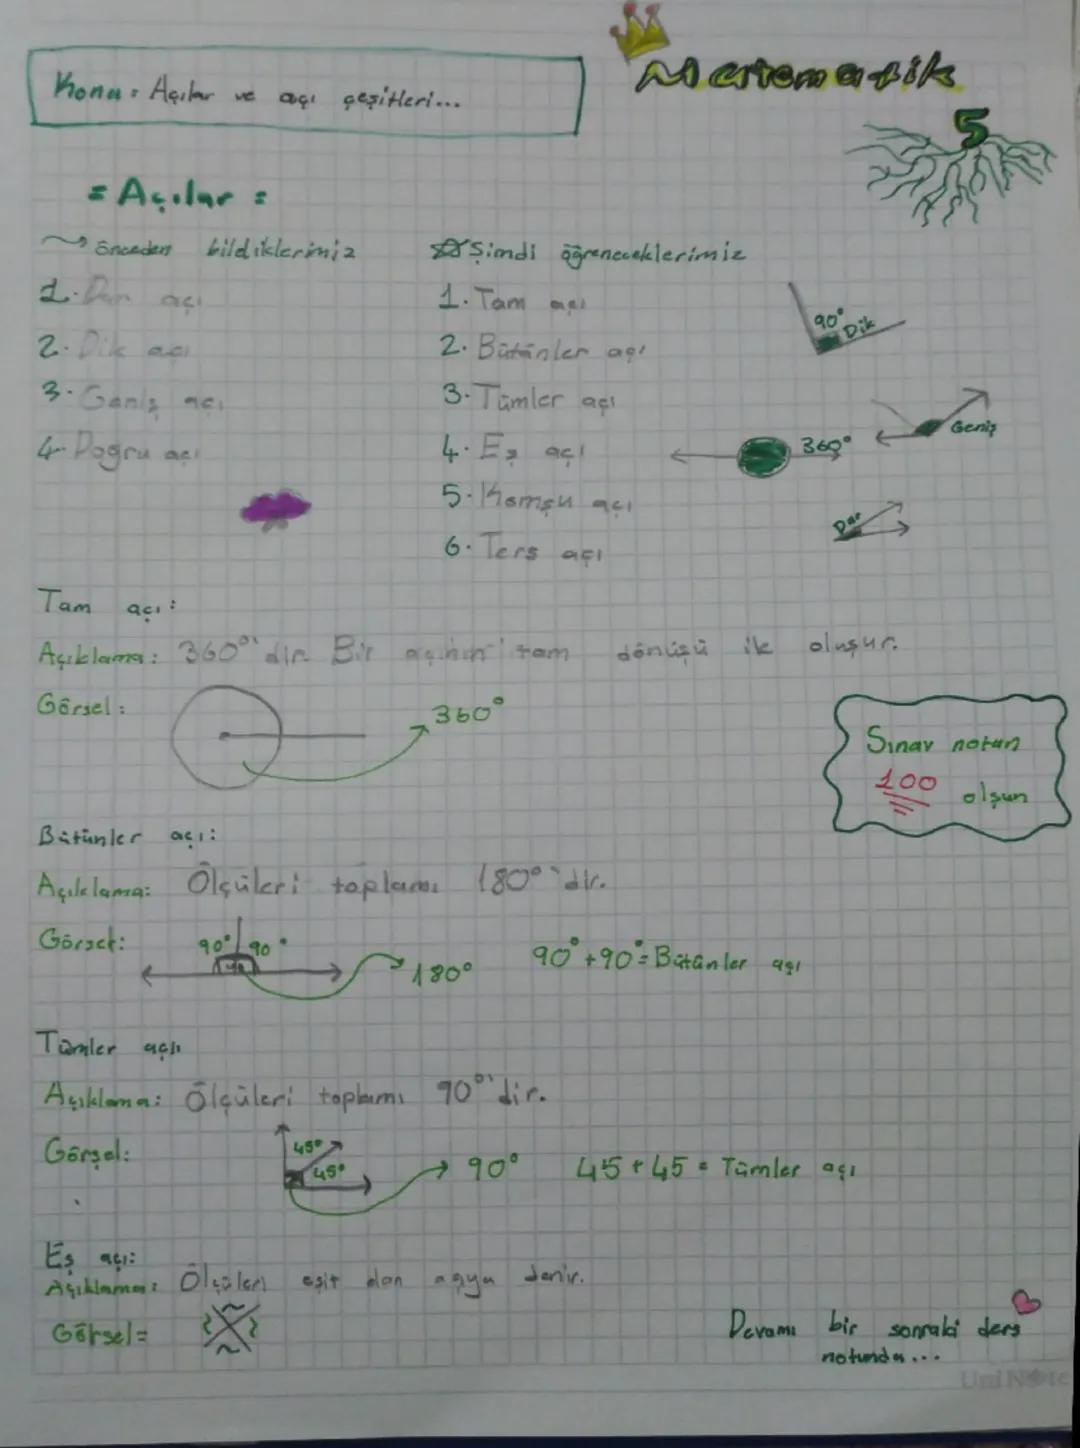 Matematik
Konu: Açılar ve açı çeşitleri...
5
= Açılar =
önceden bildiklerimiz
Şimdi öğreneceklerimiz
1. Dar açı
2. Dik açı
3. Geniş açı
4. Doğru açı
1. Tam açı
2. Bütünler açı
3. Tümler açı
4. Eş açı
5. Komşu açı
6. Ters açı
90° Dik
Geniş
360°
Dar
Tam açı:
Açıklama: 360°'dir. Bir açının tam dönüşü ile oluşur.
Görsel:
360°
Sınav notun
100 olsun
Bütünler açı:
Açıklama: Ölçüleri toplamı 180°'dir.
Görsel:
90° 90°
180°
90°+90°=Bütünler açı
Tümler açı
Açıklama: Ölçüleri toplamı 90°'dir.
Görsel:
45°
45°
90°
45+45 = Tümler açı
Eş açı:
Açıklama: Ölçüleri eşit olan açıya denir.
Görsel=
Devamı bir sonraki ders
notunda...
UniNote